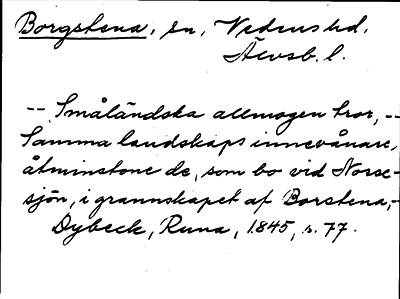 Borgstena, sn, Vedens hd,
Älvsb. l.
-- Småländska allmogen tror, --
Samma landskaps innevånare,
åtminstone de, som bo vid Norse-
sjön, i grannskapet af Borstena,-
Dybeck, Runa, 1845, s. 77.